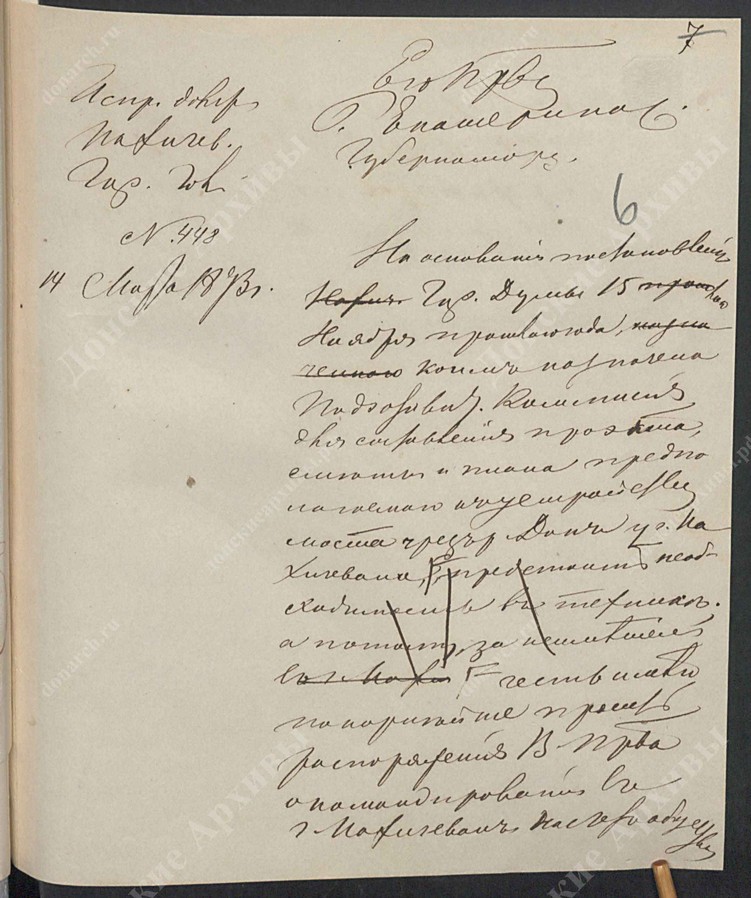 7
Испр. долж
Нахичев.
Гор. Гол.
№ 448
14 Марта 1873 г.
Его Прву
Г. Екатеринос.
Губернатору.
6
На основании постановления
Нахич. Гор. Думы 15
Ноября прошлого года,
коим назначена
Подготовит. Коммисия
для составления проэкта,
сметы и плана предпо
лагаемого к устройству
моста чрез р. Дон у г. На
хичевана, предстоит необ-
ходимость в технике.
а потому, за неимением
его в Нахи честь имею
покорнейше просить
распоряжения В. Прва
о командировании в
г. Нахичевань